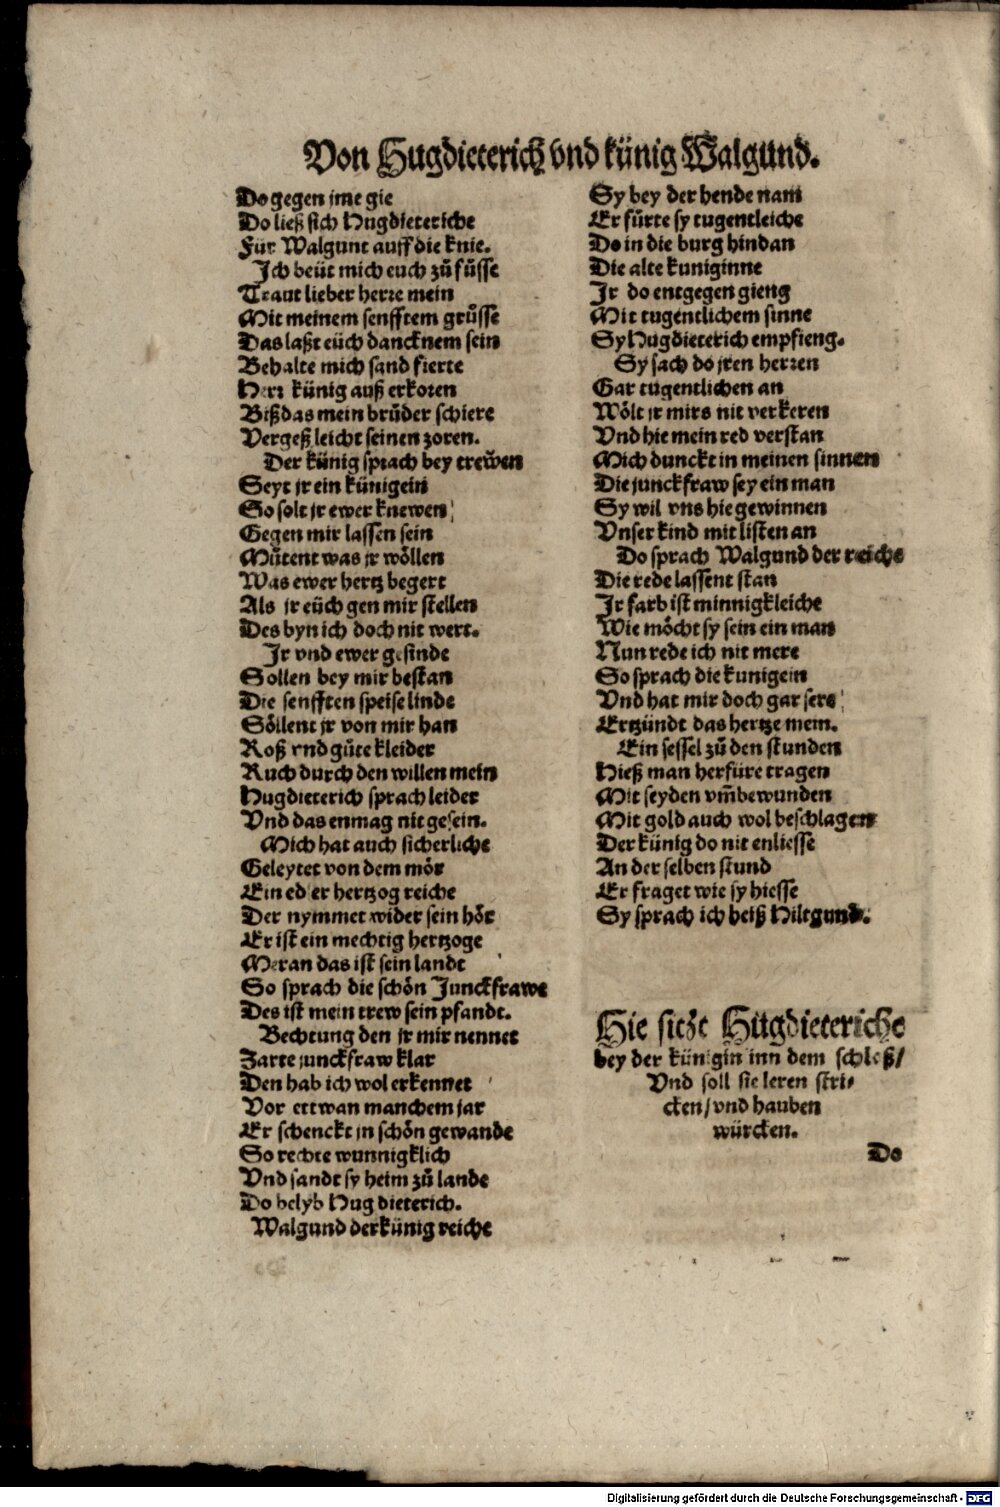 Von Hugdieterich vnd künig Walgund.
Do gegen jme gie
Do ließ sich Hugdieteriche
Für Walgunt auff die knie.
Ich beüt mich euch zů fůsse
Traut lieber herre mein
Mit meinem senfftem grůsse
Das laßt eüch dancknem sein
Behalte mich sand fierte
Herr künig auß erkoren
Bißdas mein brůder schiere
Vergeß leicht seinen zoren.
Der künig sprach bey trewen
Seyt jr ein künigein
So solt jr ewer knewen
Gegen mir lassen sein
Můtent was jr wöllen
Was ewer hertz begert
Als jr eüch gen mir stellen
Des byn ich doch nit wert.
Jr vnd ewer gesinde
Sollen bey mir bestan
Die senfften speise linde
Söllent jr von mir han
Roß vnd gůte kleider
Ruch durch den willen mein
Hugdieterich sprach leider
Vnd das enmag nit gesein.
Mich hat auch sicherliche
Geleytet von dem mör
Ein edler hertzog reiche
Der nymmet wider sein hör
Er ist ein mechtig hertzoge
Meran das ist sein landt
So sprach die schön Junckfrawe
Des ist mein trew sein pfandt.
Bechtung den jr mir nennet
Zarte junckfraw klar
Den hab ich wol erkennet
Vor ettwan manchem jar
Er schenckt jn schön gewande
So rechte wunnigklich
Vnd sandt sy heim zů lande
Do belyb Hug dieterich.
Walgund der künig reiche
Sy bey der hende nam
Er fůrte sy tugentleiche
Do in die burg hindan
Die alte kuniginne
Jr do entgegen gieng
Mit tugentlichem sinne
Sy Hugdieterich empfieng.
Sy sach do jren herren
Gar tugentlichen an
Wölt jr mirs nit verkeren
Vnd hie mein red verstan
Mich dunckt in meinen sinnen
Die junckfraw sey ein man
Sy wil vns hie gewinnen
Vnser kind mit listen an
Do sprach Walgund der reiche
Die rede lassent stan
Jr farb ist minnigkleiche
Wie möcht sy sein ein man
Nun rede ich nit mere
So sprach die kunigein
Vnd hat mir doch gar sere
Ertzündt das hertze mein.
Ein sessel zů den stunden
Hieß man herfüre tragen
Mit seyden vm̄bewunden
Mit gold auch wol beschlagen
Der künig do nit enliesse
An der selben stund
Er fraget wie sy hiesse
Sy sprach ich heiß Hiltgund.
Hie sitzt Hugdieteriche
bey der künigin inn dem schloß/
Vnd soll sie leren stri-
cken/ vnd hauben
würcken.
Do
Digitalisierung gefördert durch die Deutsche Forschungsgemeinschaft - DFG